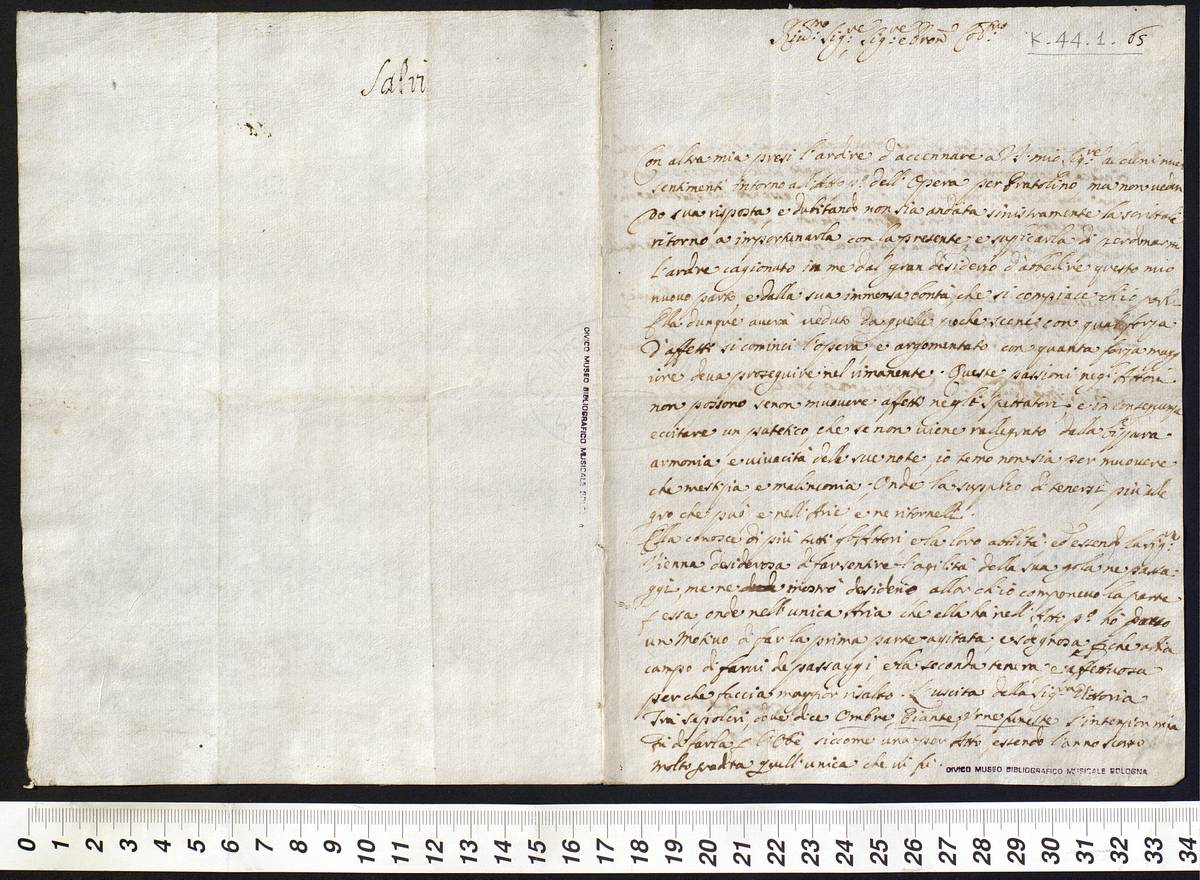 Salvi
K. 44. 1. 65
Con altra mia presi l'ardire d'accennare a V. S. mio Sig.re alcuni miei
sentimenti intorno all'Atto p.o dell'Opera per Pratolino, ma non veden
do sua risposta e dubitando non sia andata sinistramente la scritta
ritorno a importunarla con la presente, e suplicarla di perdonarmi
l'ardire cagionato in me dal gran desiderio d'abbellire questo mio
nuovo parto, e dalla sua immensa bontà, che si compiace ch'io
Ella dunque averà veduto da quelle poche scene con qual forza
d'affetti si cominci l'opera, e argomentato con quanta forza magg
iore deva proseguire nel rimanente. Queste passioni negl'Attori
non possono se non muovere affetti negl Spettatori, e in consequenza
eccitare un patetico, che se non viene rallegrato dalla
armonia e vivacità delle sue note, io temo non sia per muovere
che mestizia e malinconia. Onde la supplico di tenersi più alle
gro che può e nell'Arie e ne ritornelli.
Ella conosce di più tutti gl'Attori e la loro abilità, ed essendo la Sig.ra
Vienna desiderosa di far sentire l'agilità della sua gola ne passa
ggi, me ne mostrò desiderio allor ch'io componevo la parte
p essa, onde nell'unica Aria che ella ha nell'Atto p.o hò dato
un Motivo di far la prima parte agitata, e sdegnosa che abbia
campo di farvi de passaggi, e la seconda tenera e affettuosa
perche faccia maggior risalto. L'uscita della Sig.ra Vittoria
Trai sepolcri dove dice Ombre, Piante, Urne funeste l'intenzion mia
fù di farla p l'Obè, siccome una per Atto, essendo l'anno scorso
molto gradita quell'unica che vi fù.
CIVICO MUSEO BIBLIOGRAFICO MUSICALE BOLOGNA
CIVICO MUSEO BIBLIOGRAFICO MUSICALE BOLOGNA
0 1 2 3 4 5 6 7 8 9 10 11 12 13 14 15 16 17 18 19 20 21 22 23 24 25 26 27 28 29 30 31 32 33 34